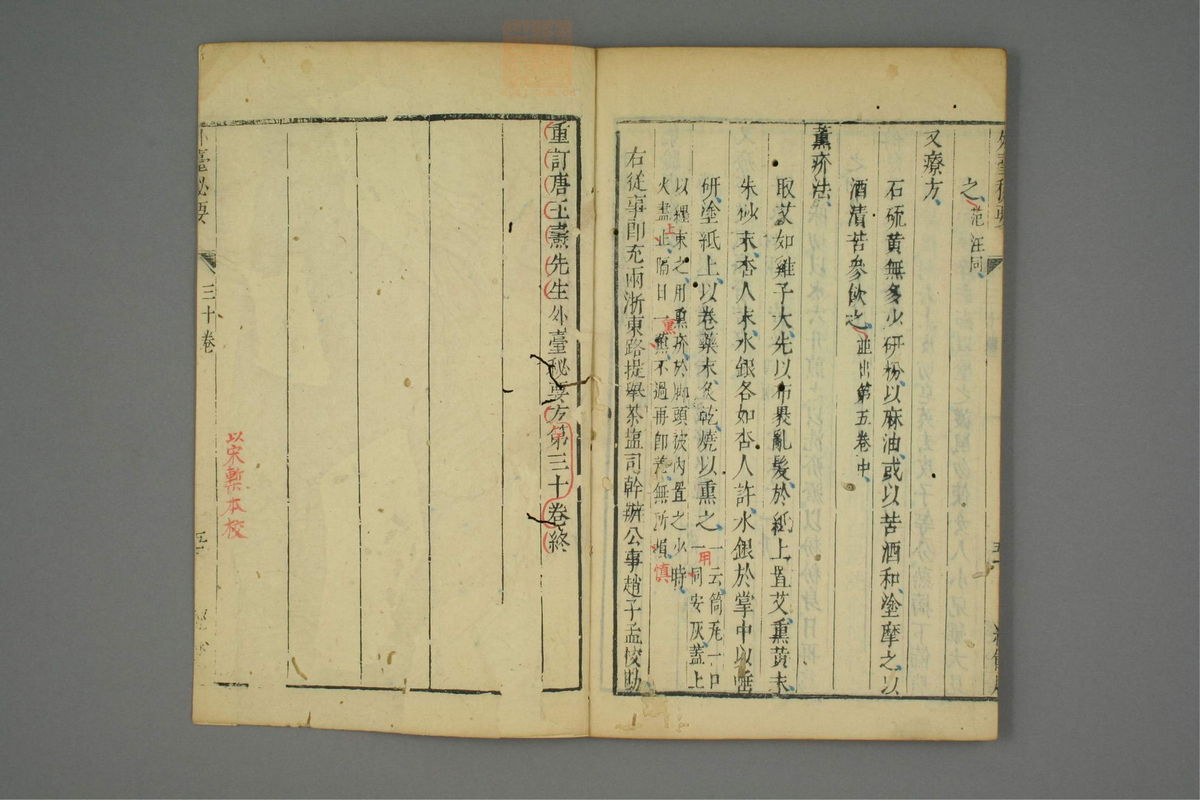 之范汪同
又療方
石硫黄無多少研粉以麻油或以苦酒和塗摩之以
酒漬苦參飲之並出第五卷中
薫疥法
取艾如雞子大先以布裹亂髮於紙上置艾熏黄末
朱砂末杏人末水銀各如杏人許水銀於掌中以唾
研塗紙上以卷藥末炙乾燒以熏之一云筒瓦一口
一同安灰蓋上
用
以纏束之用熏疥於脚頭被内置之少時
火盡止隔日一熏不過再即差無所損
上
熏
慎
右從事郎充兩浙東路提舉茶鹽司幹辦公事趙子孟校勘
重訂唐王燾先生外臺秘要方第三十卷終
外臺秘要
三十卷
以宋槧本校